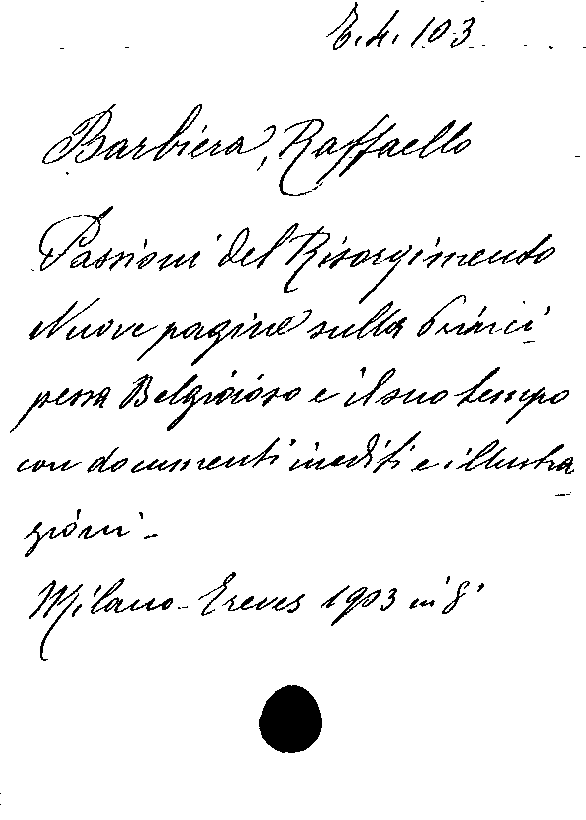 E.4.103
Barbiera, Raffaello
Passioni del Risorgimento
Nuove pagine sulla Princi-
pessa Belgioioso e il suo tempo
con documenti inediti e illustra-
zioni -
Milano - Treves 1903 in 8°